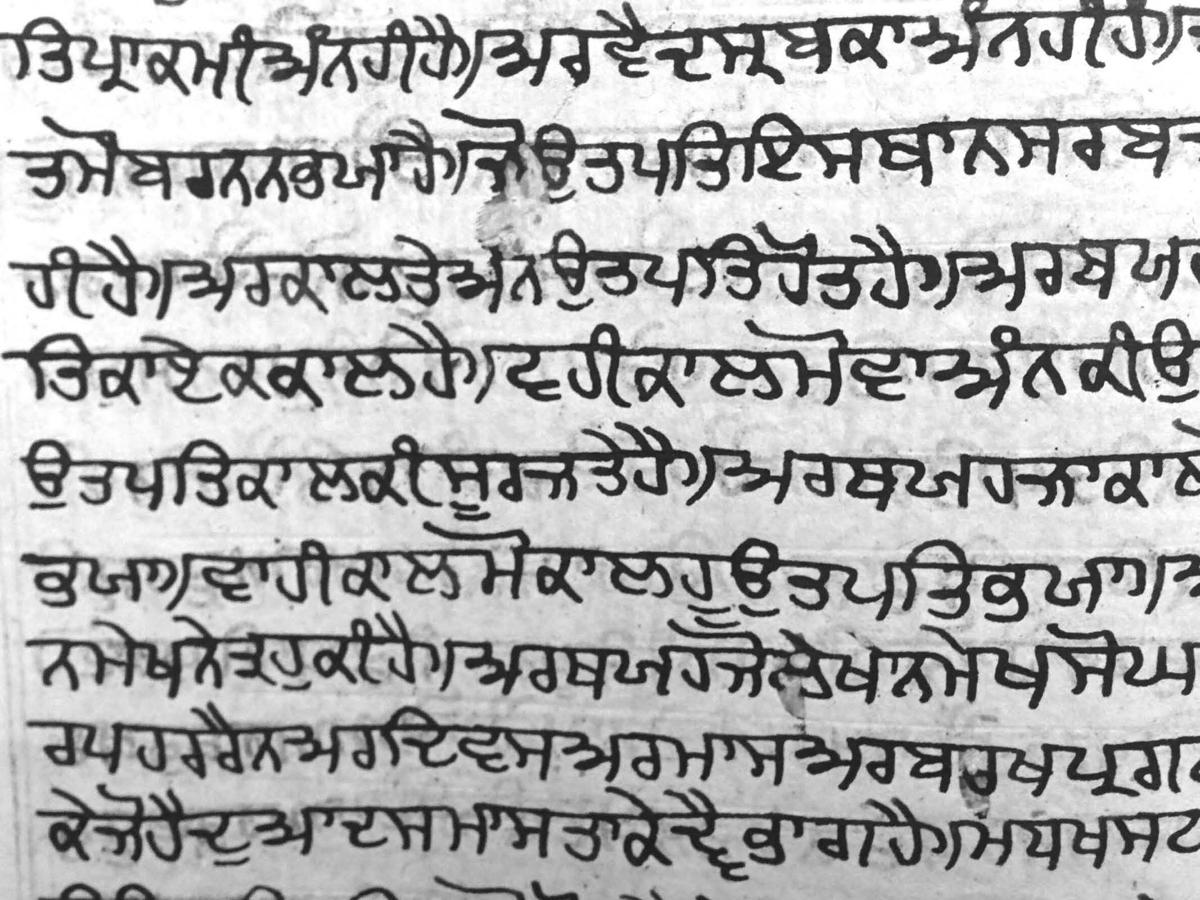 ਤਿਪ੍ਰਾਕਮੀਅੰਨਹੀਹੈ॥ਅਰਵੈਦਸਰਬਕਾਅੰਨਹੀਹੈ॥
ਤਮੋਬਰਨਨਭਯਾਹੈ॥ਜੋਉਤਪਤਿਇਸਥਾਨਸਰਬ
ਹੀਹੈ॥ਅਰਕਾਲਤੇਅੰਨਉਤਪਤਿਹੋਤਹੈ॥ਅਰਬਯ
ਤਿਕਾਏਕਕਾਲਹੈ॥ਵਹੀਕਾਲਮੋਵਾਅੰਨਕੀਉ
ਉਤਪਤਿਕਾਲਕੀਸੂਰਜਤੇਹੈ॥ਅਰਬਯਹਜਾਕਾਲੇ
ਭਯਾ॥ਵਾਹੀਕਾਲਮੋਕਾਲਹੂਉਤਪਤਿਭਯਾ॥
ਨਮੇਖਨੇਤ੍ਰਹੁਕੀਹੈ॥ਅਰਬਯਹਜੋਲੇਖਾਨਮੇਖਸੋਘ
ਰਪਹਰਰੈਨਅਰਦਿਵਸਅਰਮਾਸਅਰਬਰਖਪ੍ਰਗ
ਕੇਜੋਹੈਦੁਆਦਸਮਾਸਤਾਕੇਦ੍ਵੈਭਾਗਹੈ॥ਮਧਖਸਟ